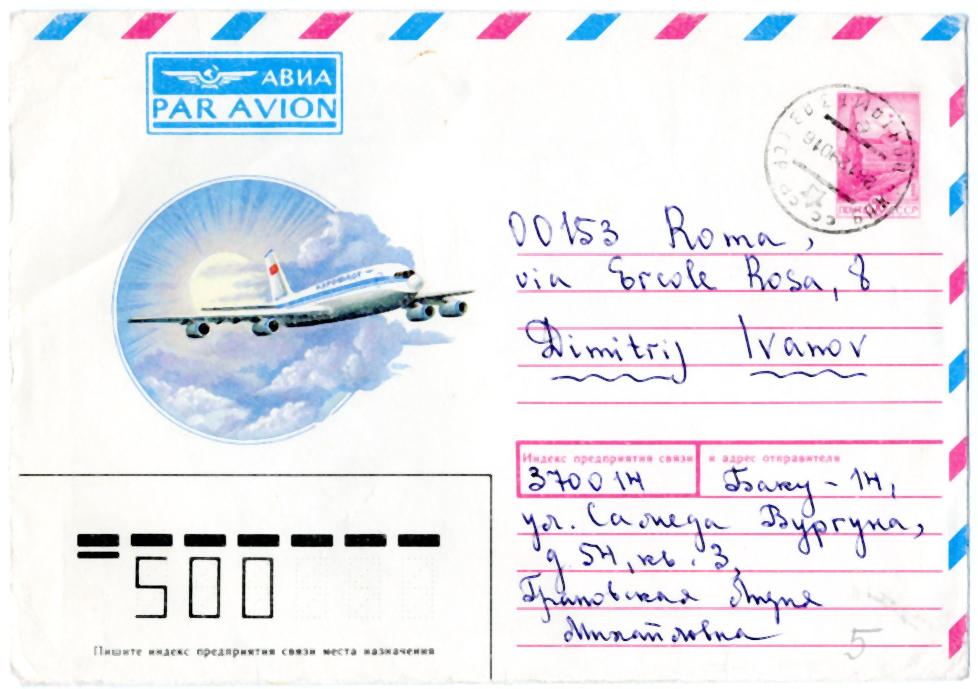 АВИА
PAR AVION
АЭРОФЛОТ
ПОЧТА СССР
00153 Roma,
via Ercole Rosa, 8
Dimitrij Ivanov
Индекс предприятия связи и адрес отправителя
370014 Баку - 14,
ул. Самеда Вургуна,
д 54, кв. 3,
Грановская Лидия
Михайловна
500
5
Пишите индекс предприятия связи места назначения